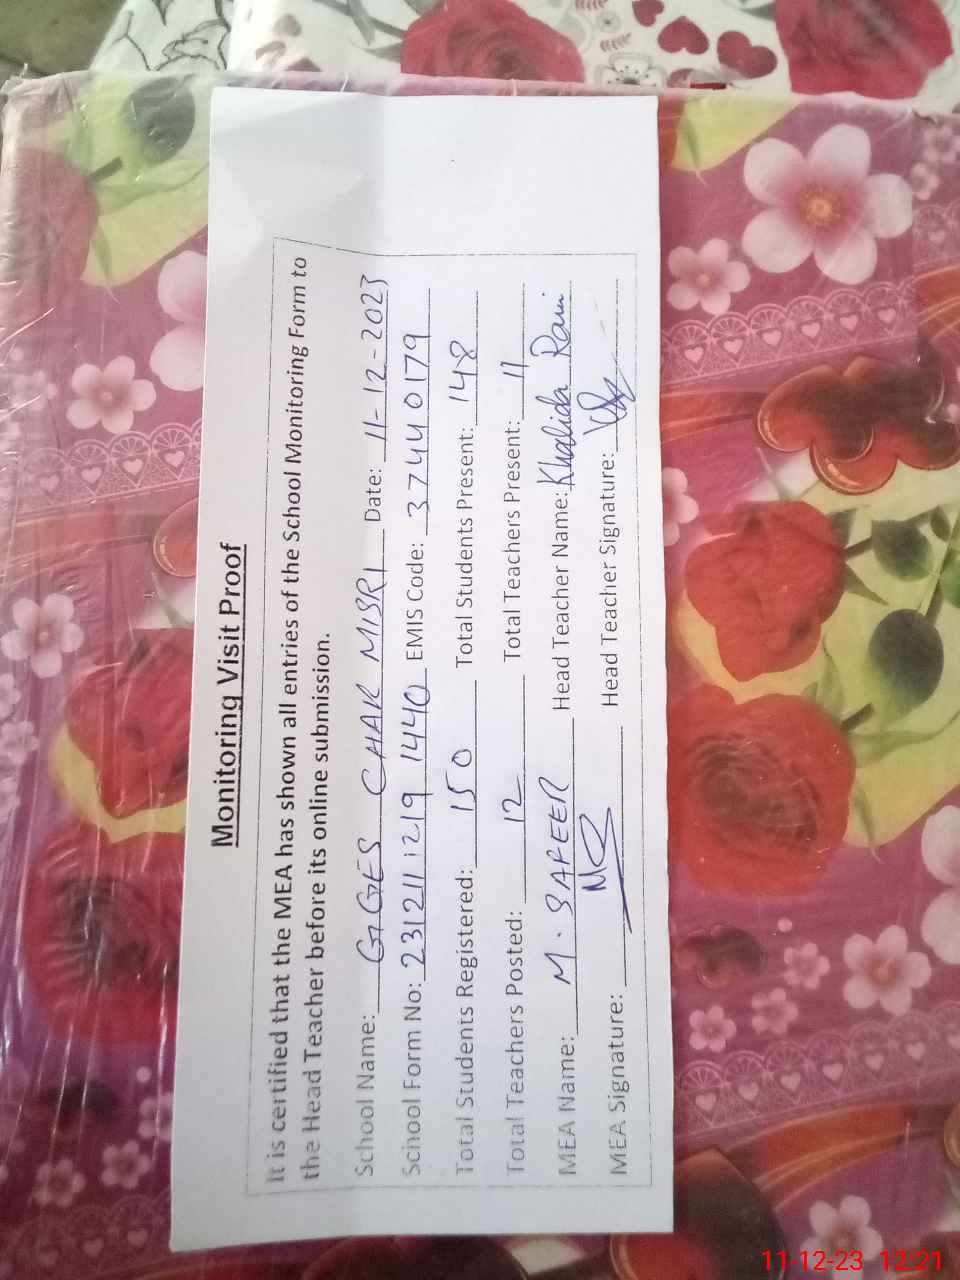 Monitoring Visit Proof
It is certified that the MEA has shown all entries of the School Monitoring Form to
the Head Teacher before its online submission.
School Name: GGES CHAK MISRI Date: 11-12-2023
School Form No: 23121112191440 EMIS Code: 37440179
Total Students Registered: 150 Total Students Present: 148
Total Teachers Posted: 12 Total Teachers Present: 11
MEA Name: M. SAFEER Head Teacher Name: Khalida Rani
MEA Signature: Head Teacher Signature:
11-12-23 12:21